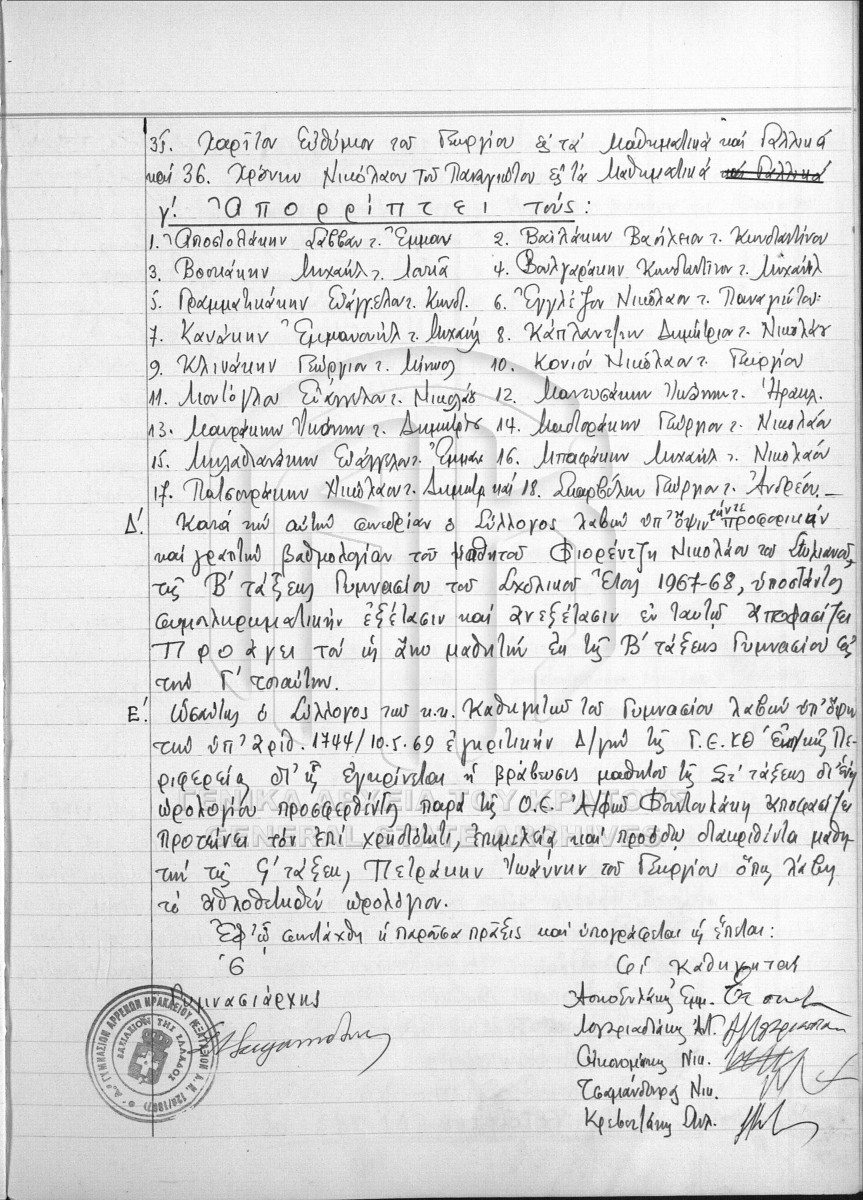 35. Χαρῖτον Εὐθύμιον του Γεωργίου εἰς τα Μαθηματικά και Γαλλικά
και 36. Χρόνην Νικόλαον του Παναγιώτου εἰς τα Μαθηματικά και Γαλλικά
γ'. Ἀπορρίπτει τους:
1. Ἀποστολάκην Σάββαν τ. Ἐμμαν 2. Βαϊλάκην Βασίλειον τ. Κωνσταντίνου
3. Βοσκάκην Μιχαήλ τ. 4. Βουλγαράκην Κωνσταντῖνον τ. Μιχαήλ
5. Γραμματικάκην Εὐάγγελον τ. Κωνστ. 6. Ἐγγλέζον Νικόλαον τ. Παναγιώτου
7. Κανάκην Ἐμμανουήλ τ. Μιχαήλ 8. Κάπλαντζην Δημήτριον τ. Νικολάου
9. Κλινάκην Γεώργιον τ. Μίνωος 10. Κονιόν Νικόλαον τ. Γεωργίου
11. Μοντόγλου Εὐάγγελον τ. Νικολάου 12. τ. Ἡρακλ.
13. Μαυράκην τ. Δημητρίου 14. Μαστοράκην Γεώργιον τ. Νικολάου
15. Μηλαθιανάκην Εὐάγγελον τ. Ἐμμαν 16. Μπαφάκην Μιχαήλ τ. Νικολάου
17. Πατσουράκην Νικόλαον τ. Δημητρ και 18. Σκαρβέλην Γεώργιον τ. Ἀνδρέου.—
Δ'. Κατά την αὐτήν συνεδρίαν ὁ Σύλλογος λαβών ὑπ' ὄψιν τήν τε προφορικήν
και γραπτήν βαθμολογίαν του μαθητου Φιορέντζη Νικολάου του Στυλιανοῦ,
της Β' τάξεως Γυμνασίου του Σχολικου Ἔτους 1967-68, ὑποστάντος
συμπληρωματικήν ἐξέτασιν και ἀνεξέτασιν ἐν ταυτῷ ἀποφασίζει
Προάγει τον ὡς ἄνω μαθητήν ἐκ της Β' τάξεως Γυμνασίου εἰς
την Γ' τοιαύτην.
Ε'. Ὡσαύτως ὁ Σύλλογος των κ.κ. Καθηγητων του Γυμνασίου λαβών ὑπ' ὄψιν
την ὑπ' ἀριθ. 1744/10.5.69 ἐγκριτικήν Δ/γήν της Γ.Ε.ΚΘ' Ἐκπ/κῆς Πε-
ριφερείας δι' ἧς ἐγκρίνεται ἡ βράβευσις μαθητου της Στ' τάξεως δι' ἑνός
ὡρολογίου προσφερθέντος παρά της Ο.Ε. Ἀ/φῶν Φουντουλάκη ἀποφασίζει
προτείνει τον ἐπί χρηστότητι, ἐπιμελείᾳ και προόδῳ διακριθέντα μαθη-
την της ς' τάξεως, Πετράκην Ἰωάννην του Γεωργίου ὅπως λάβῃ
το ἀθλοθετηθέν ὡρολόγιον.
Ἐφ' ᾧ συνετάχθη ἡ παροῦσα πρᾶξις και ὑπογράφεται ὡς ἕπεται:
Ὁ Οἱ Καθηγηταί
Γυμνασιάρχης
Ἀσκοξυλάκης Ἐμμ.
Λογιαδάκης Ἀντ.
Οἰκονομάκης Νικ.
Τσαμάνδουρας Νικ.
Κρεβετζάκης Στυλ.
Α' ΓΥΜΝΑΣΙΟΝ ΑΡΡΕΝΩΝ ΗΡΑΚΛΕΙΟΥ ΕΞΑΤΑΞΙΟΝ Α.Ν. 129/1967
ΒΑΣΙΛΕΙΟΝ ΤΗΣ ΕΛΛΑΔΟΣ
ΓΕΝΙΚΑ ΑΡΧΕΙΑ ΤΟΥ ΚΡΑΤΟΥΣ
GENERAL STATE ARCHIVES